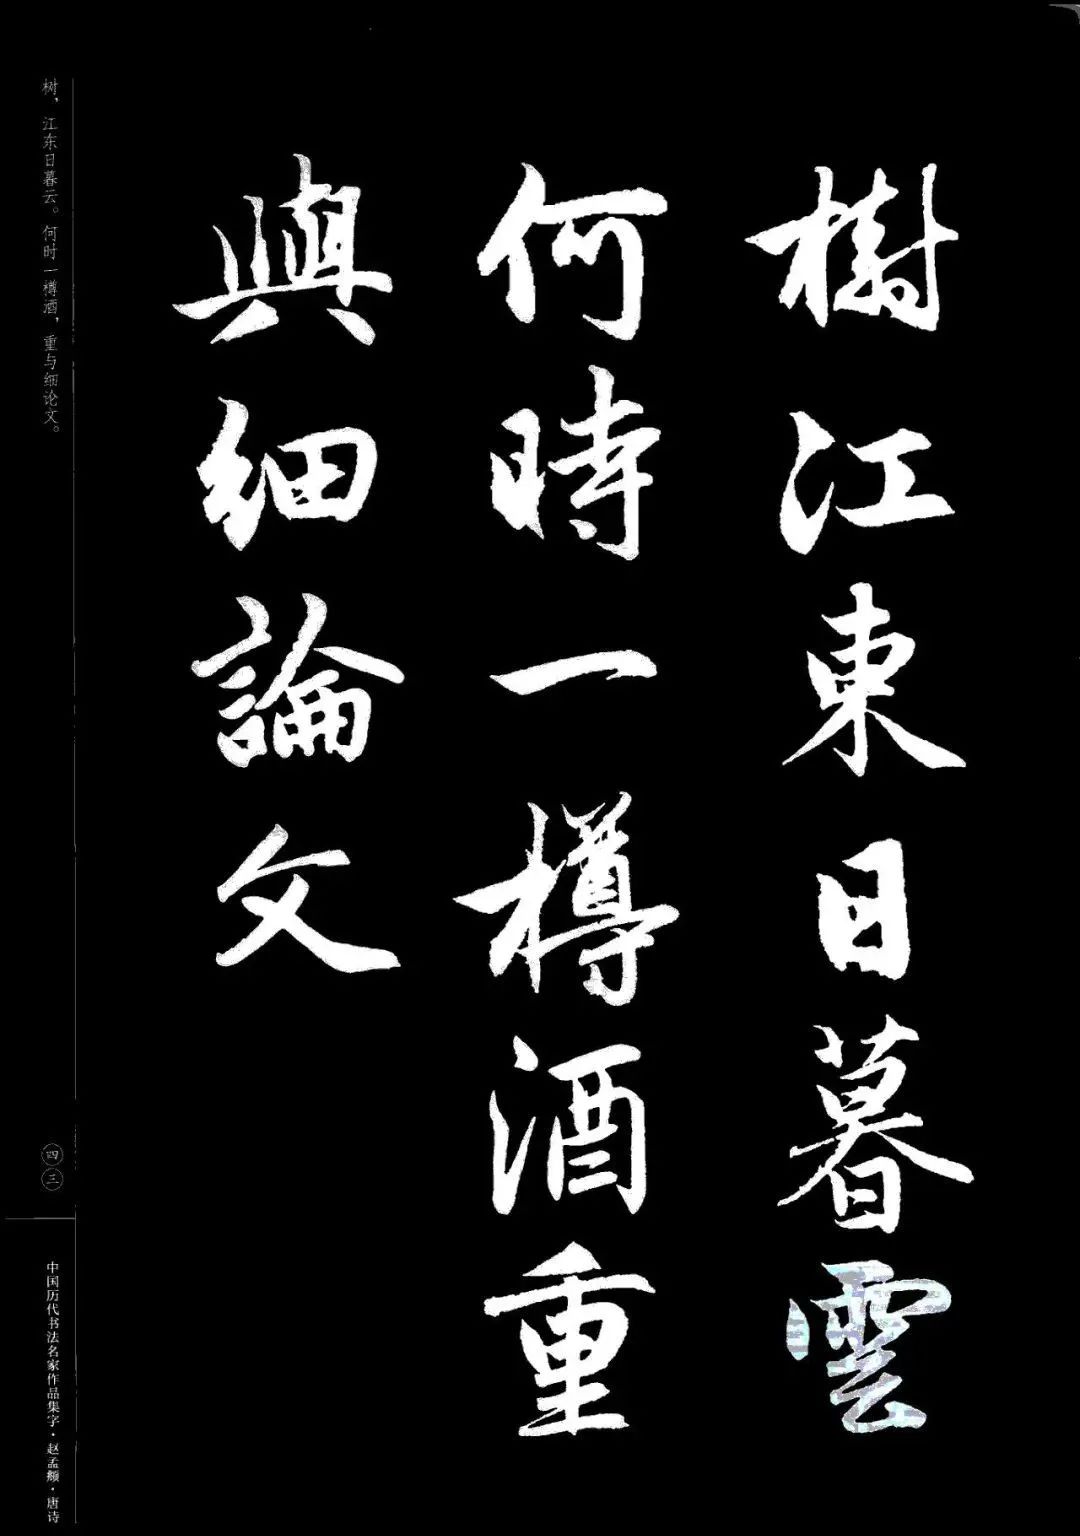 樹江東日暮雲
何時一樽酒重
與細論文
树，江东日暮云。何时一樽酒，重与细论文。
四三
中国历代书法名家作品集字·赵孟頫·唐诗